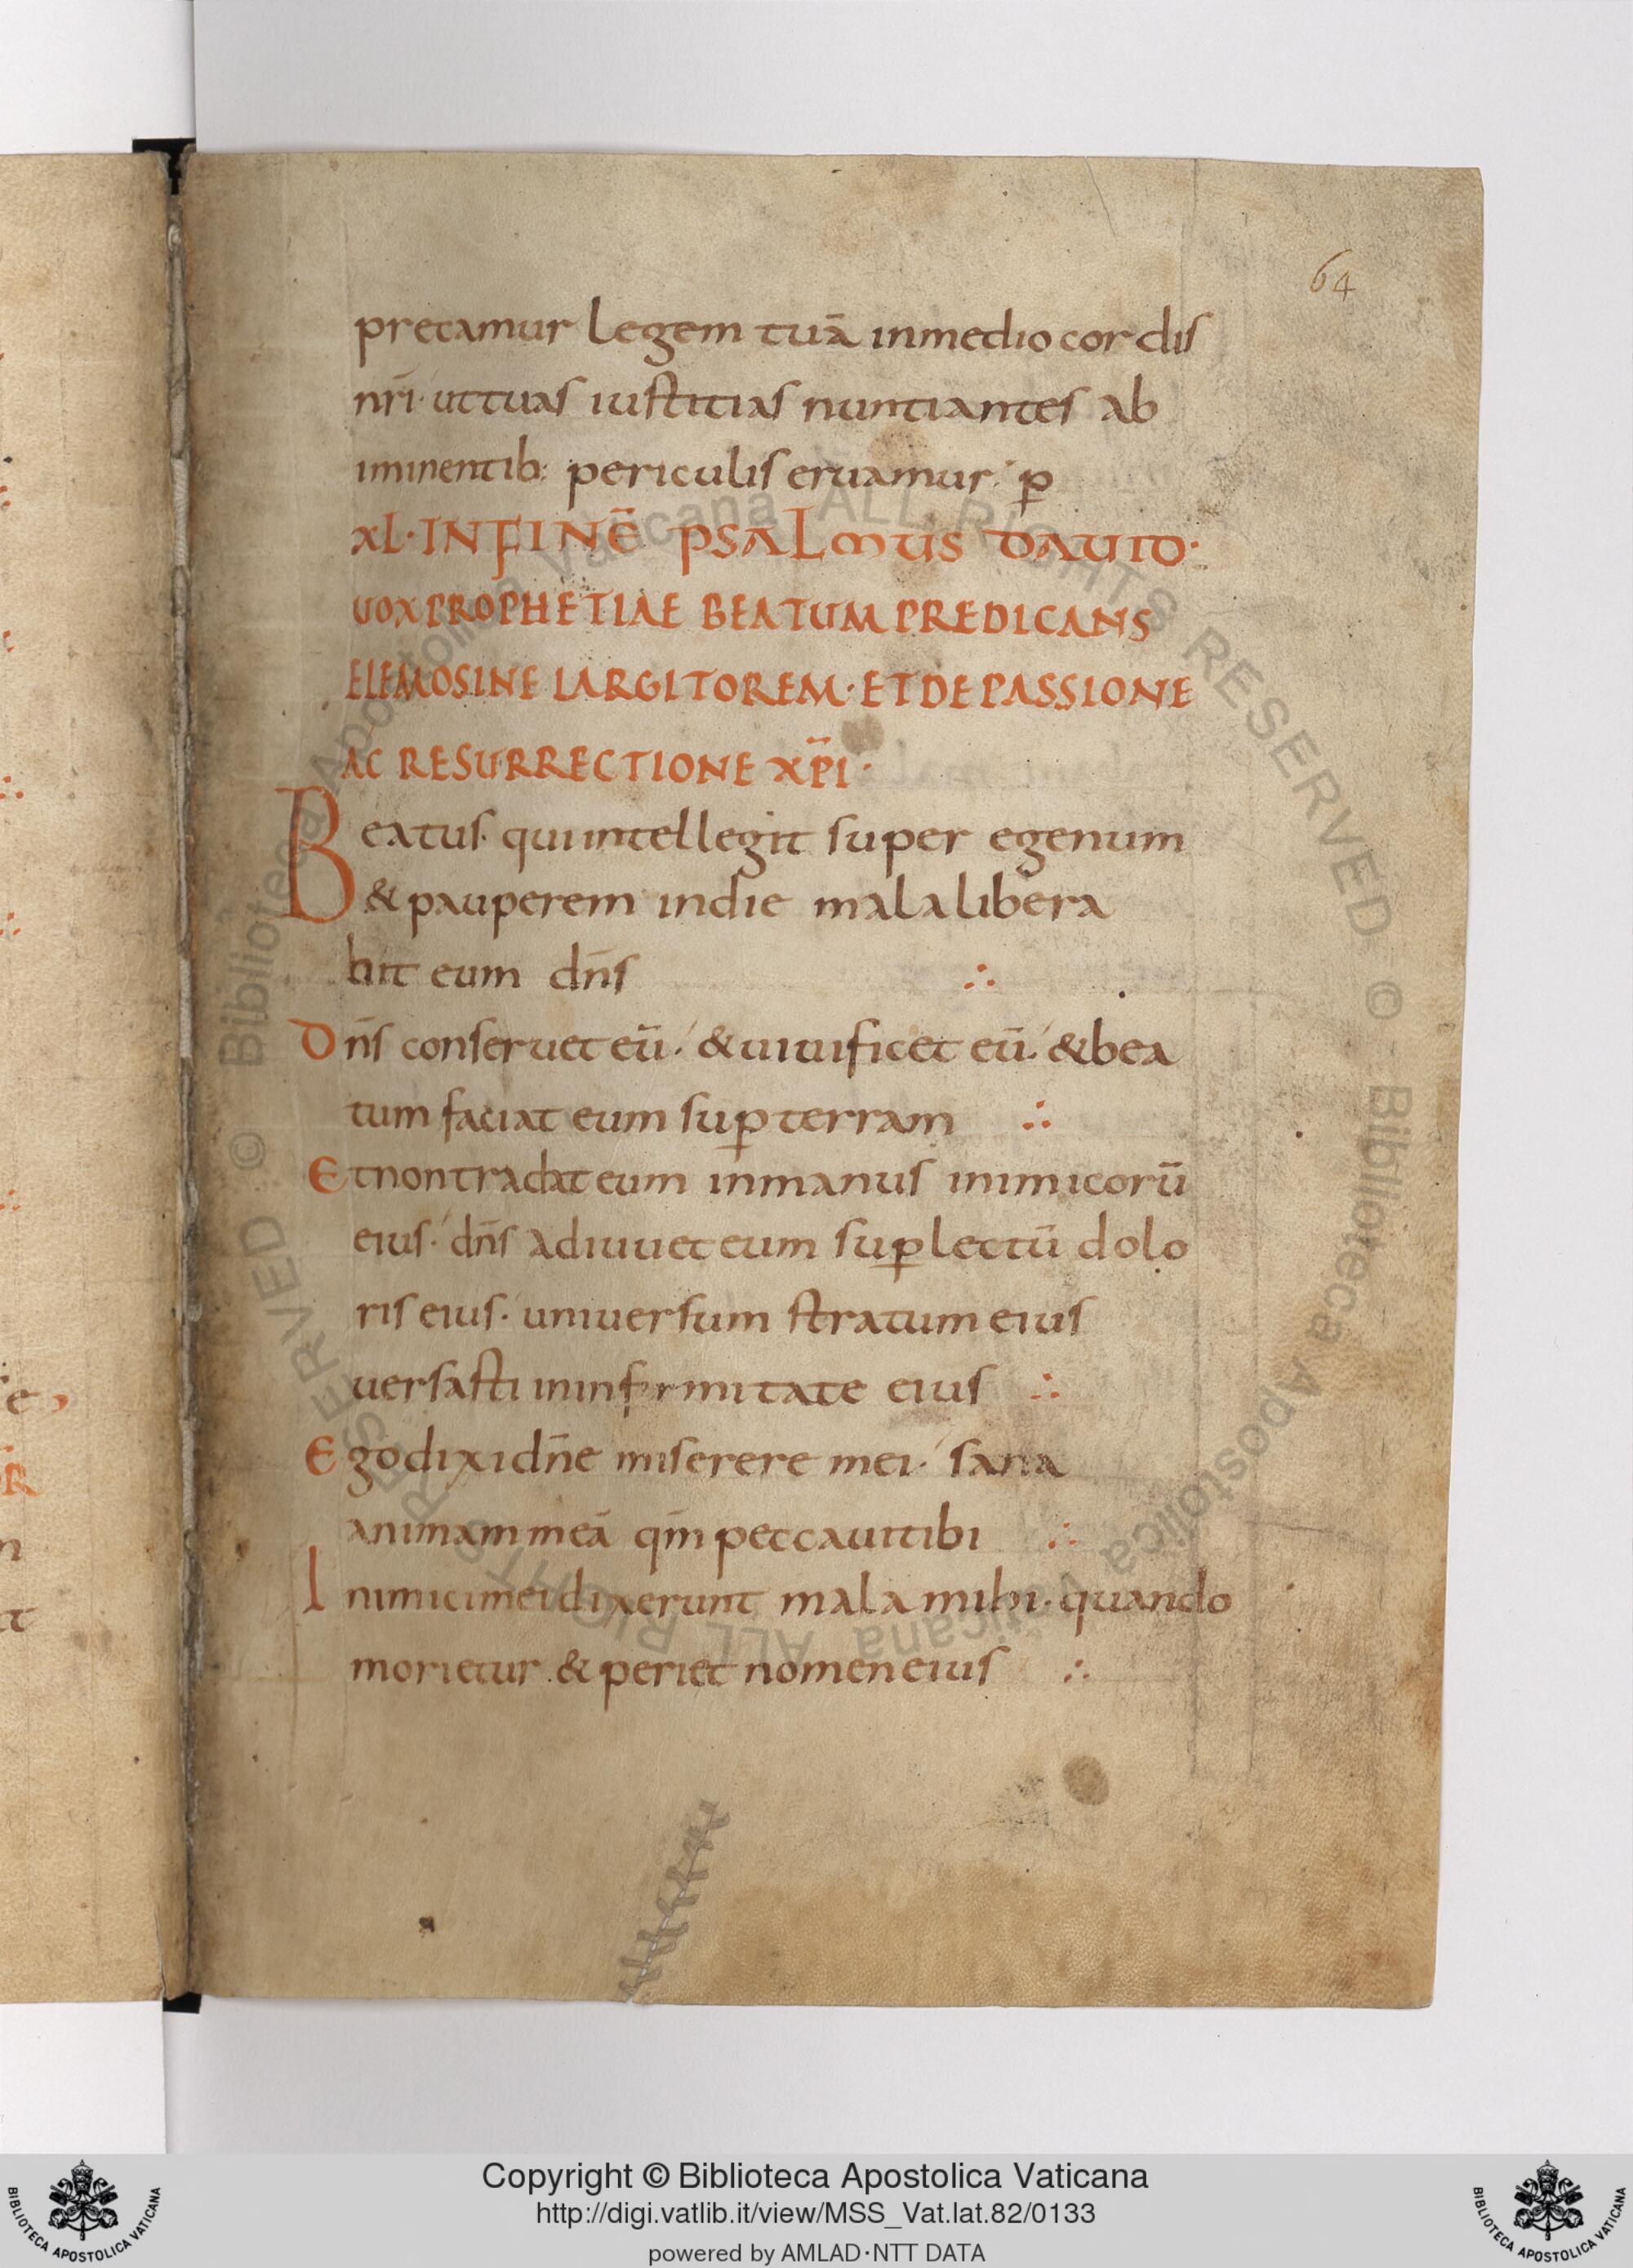 64
precamur legem tuā inmedio cordis
nr̄i· ut tuas iustitias nuntiantes ab
iminentib: periculis eruamur· p̱
XL· IN FINĒ PSALMUS DAVID·
UOX PROPHETIAE BEATUM PREDICANS
ELEMOSINE LARGITOREM· ET DE PASSIONE
AC RESURRECTIONE XP̄I·
Beatus· qui intellegit super egenum
& pauperem in die mala libera
bit eum dn̄s ∴
Dn̄s conseruet eū· & uiuificet eū· & bea
tum faciat eum sup̱ terram ∴
Et non tradat eum in manus inimicorū
eius· dn̄s adiuuet eum sup̱ lectū dolo
ris eius· uniuersum stratum eius
uersasti in infirmitate eius ∴
Ego dixi dn̄e miserere mei· sana
animam meā qm̄ peccaui tibi ∴
Inimici mei dixerunt mala mihi· quando
morietur & periet nomen eius ∴
Copyright © Biblioteca Apostolica Vaticana
http://digi.vatlib.it/view/MSS_Vat.lat.82/0133
powered by AMLAD·NTT DATA
BIBLIOTECA APOSTOLICA VATICANA
BIBLIOTECA APOSTOLICA VATICANA
© Biblioteca Apostolica Vaticana ALL RIGHTS RESERVED © Biblioteca Apostolica Vaticana ALL RIGHTS RESERVED